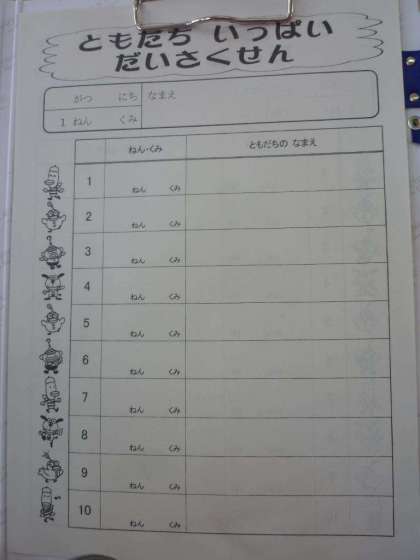 ともだち いっぱい
だいさくせん
がつ にち なまえ
1 ねん くみ
ねん・くみ ともだちの なまえ
1 ねん くみ
2 ねん くみ
3 ねん くみ
4 ねん くみ
5 ねん くみ
6 ねん くみ
7 ねん くみ
8 ねん くみ
9 ねん くみ
10 ねん くみ